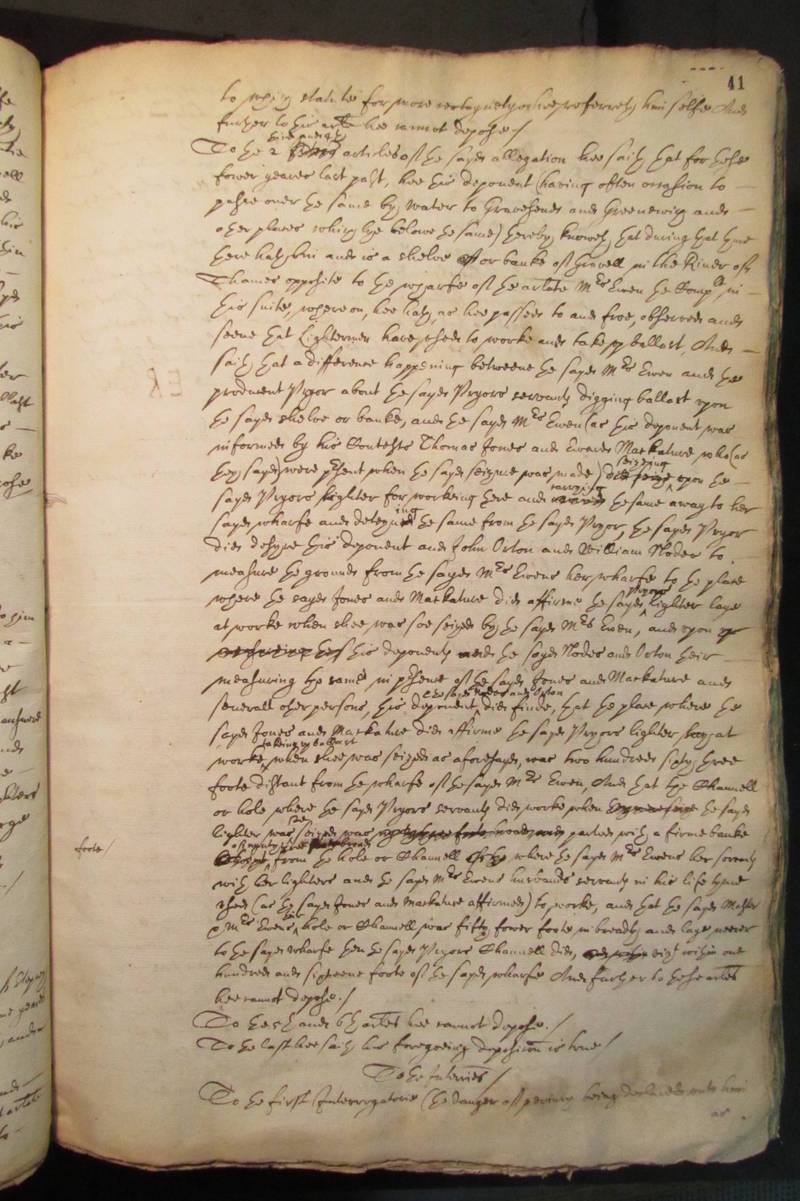 41
to which statute for more certainty hee referreth himselfe And
further to his arlte hee cannot depose./
third and 4th
To the 2 articles of the sayd allegation hee saith that for these
fower yeares last past, hee this deponent (having often occasion to
passe over the same by water to Gravesend and Greenewich and
other places which lye belowe the same) thereby knoweth that during that tyme
there hath bin and is a shelve or banke of Gravell in the River of
Thames opposite to the wharfe of the arlate Mrs Ewen the Complt in
this suite, whereon, hee hath, as hee passed to and froe, observed and
seene that Lightermen have used to worke and take up ballast, And
saith that a difference happening betweene the sayd Mrs Ewen and the
producent Pryor about the sayd Pryors servants digging ballast upon
the sayd shelve or banke, and the sayd Mrs Ewen (as this deponent was
informed by his Contests Thomas Jones and Edward Mackature who (as
seizing
they sayd) were present when the sayd seizure was made) upon the
carrying
sayd Pryors Lighter for working there and the same away to her
ing
sayd wharfe and deteyn the same from the sayd Pryor, the sayd Pryor
did desyre this deponent and John Orton and William Nodes to
measure the ground from the sayd Mrs Ewens her wharfe to the place
Pryors
where the sayd Jones and Mackature did affirme the sayd Lighter laye
at worke when shee was soe seized by the sayd Mrs Ewen, and upon
this deponents and the sayd Nodes and Orton their
measuring the same in presence of the sayd Jones and Mackature and
the sayd Nodes and Orton
severall other persons, this deponent did finde, that the place where the
sayd Jones and Mackature did affirme the sayd Pryors lighter lay at
taking up ballast
worke, when shee was seized as aforesayd, was two hundred sixty three
foote distant from the wharfe of the sayd Mrs Ewen, And that the Channell
or hole where the sayd Pryors servants did worke when the sayd
lighter was seized was parted with a firme banke
foote/
from the hole or Channell where the sayd Mrs Ewens her servants
with her lighters and the sayd Mrs Ewens husbands servants in his life tyme
used (as the sayd Jones and Mackature affirmed) to worke, and that the sayd
Mrs Ewens hole or Channell, was fifty fower foote in breadth and laye neerer
to the sayd wharfe then the sayd Pryors Channell did, within one
hundred and sixteene foote of the sayd wharfe And further to these arltes
hee cannot depose./
To the 5th and 6th arltes hee cannot depose./
To the last hee saith his foregoeing deposicon is true/
To the Interries/
To the first Interrogatorie (the danger of periury being declared unto him